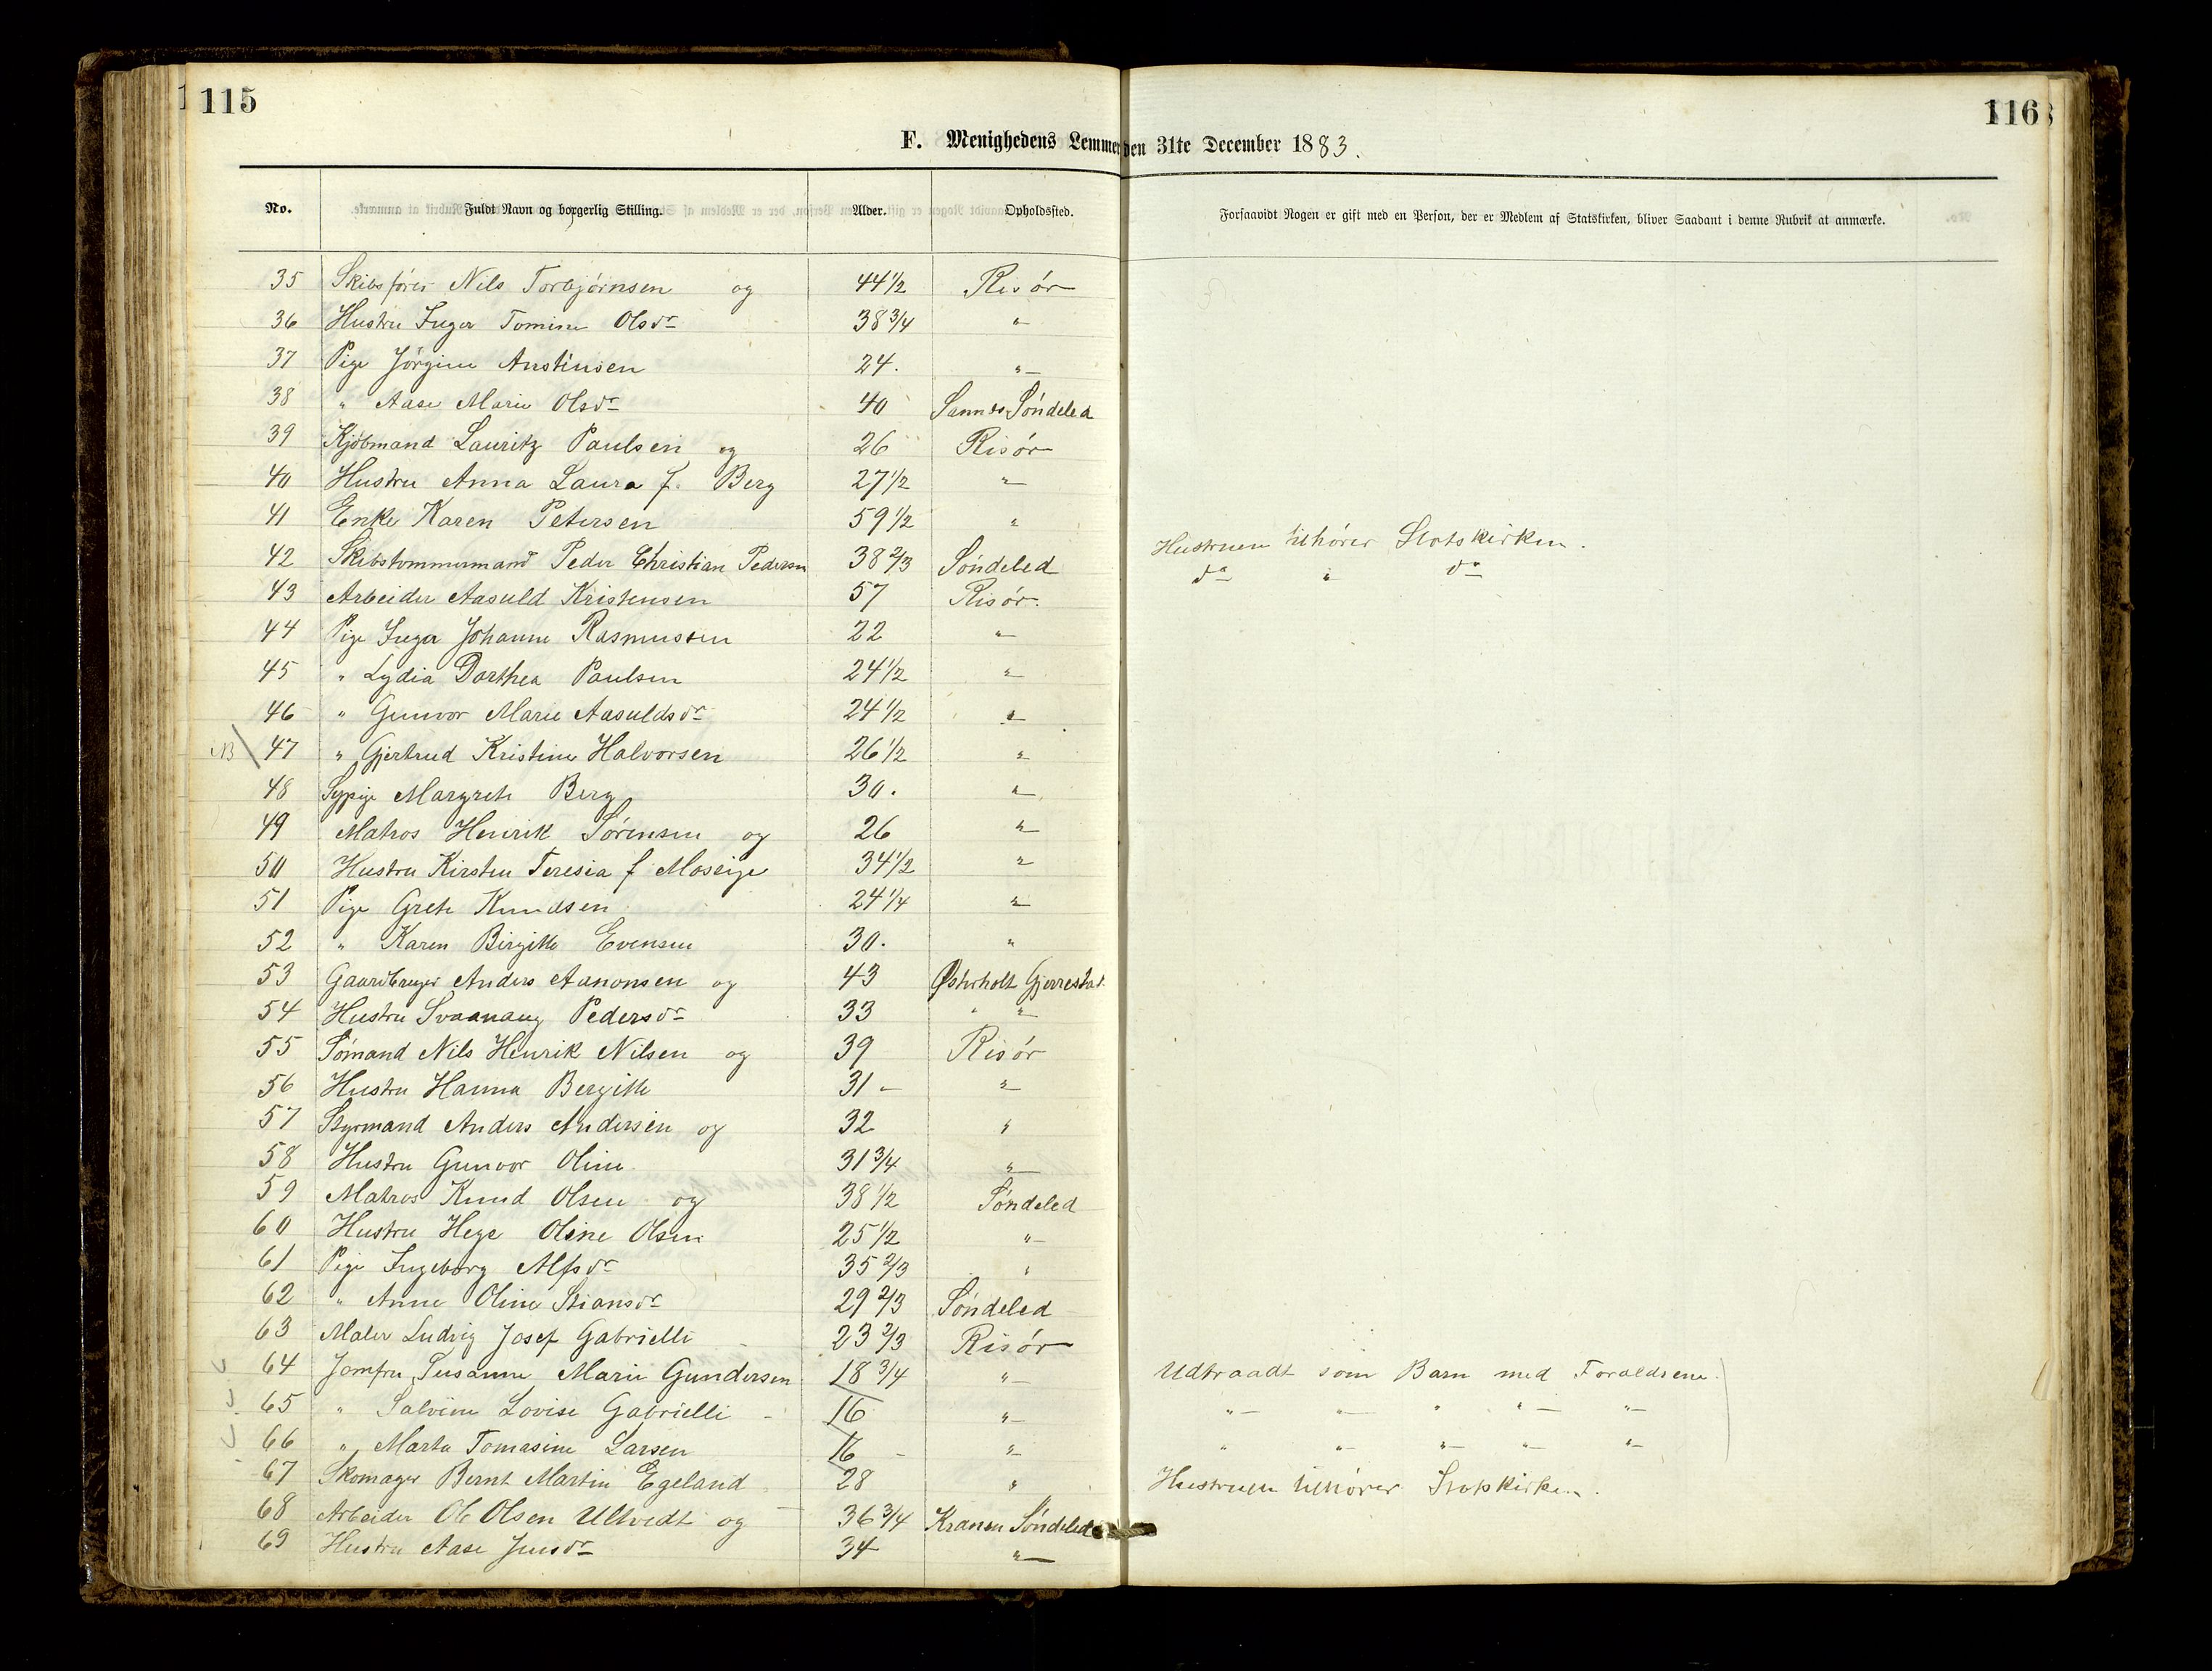 115
116
F. Menighedens Lemmer den 31te December 1883.
No. Fuldt Navn og borgerlig Stilling. Alder. Opholdssted. Forsaavidt Nogen er gift med en Person, der er Medlem af Statskirken, bliver Saadant i denne Rubrik at anmærke.
35 Skibsfører Nils Torbjørnsen og 44 1/2 Risør
36 Hustru Inger Tomine Olsdr 38 3/4 "
37 Pige Jörgine Austinsen 24. "
38 " Aase Marie Olsdr 40 Sannes Söndeled
39 Kjöbmand Lauritz Paulsen og 26 Risör
40 Hustru Anna Laura f. Berg 27 1/2 "
41 Enke Karen Petersen 59 1/2 "
42 Skibstømmermand Peder Christian Pedersen 38 2/3 Söndeled Hustruen tilhörer Statskirken.
43 Arbeider Aasuld Kristensen 57 Risör. do " do
44 Pige Inger Johanne Rasmussen 22 "
45 " Lydia Dorthea Paulsen 24 1/2 "
46 " Gunvor Marie Aasuldsdr 24 1/2 "
NB / 47 " Gjertrud Kristine Halvorsen 26 1/2 "
48 Sypige Margrete Berg 30. "
49 Matros Henrik Sörensen og 26 "
50 Hustru Kirsten Teresia f Moseige 34 1/2 "
51 Pige Grete Knudsen 24 1/4 "
52 " Karen Birgitte Evensen 30. "
53 Gaardbruger Anders Aanonsen og 43 Østerholt Gjerrestad
54 Hustru Svaanaug Pedersdr 33 " "
55 Sömand Nils Henrik Nilsen og 39 Risör
56 Hustru Hanna Bergitte 31 - "
57 Styrmand Anders Andersen og 32 "
58 Hustru Gunvor Oline 31 3/4 "
59 Matros Knud Olsen og 38 1/2 Söndeled
60 Hustru Hege Oline Olsen 25 1/2 "
61 Pige Ingeborg Alfsdr 35 2/3 "
62 " Anne Oline Stiansdr 29 2/3 Söndeled
63 Maler Ludvig Josef Gabrielli 23 2/3 Risör
64 Jomfru Susanne Marie Gundersen 18 3/4 " Udtraadt som Barn med Foraldrene.
65 " Salvine Lovise Gabrielli - 16 " " " " " "
66 " Marta Tomasine Larsen 16 - " " " " " "
67 Skomager Bernt Martin Egeland 28 " Hustruen tilhörer Statskirken.
68 Arbeider Ole Olsen Ultvedt og 36 3/4 Kranen Söndeled
69 Hustru Aase Jensdr 34 "